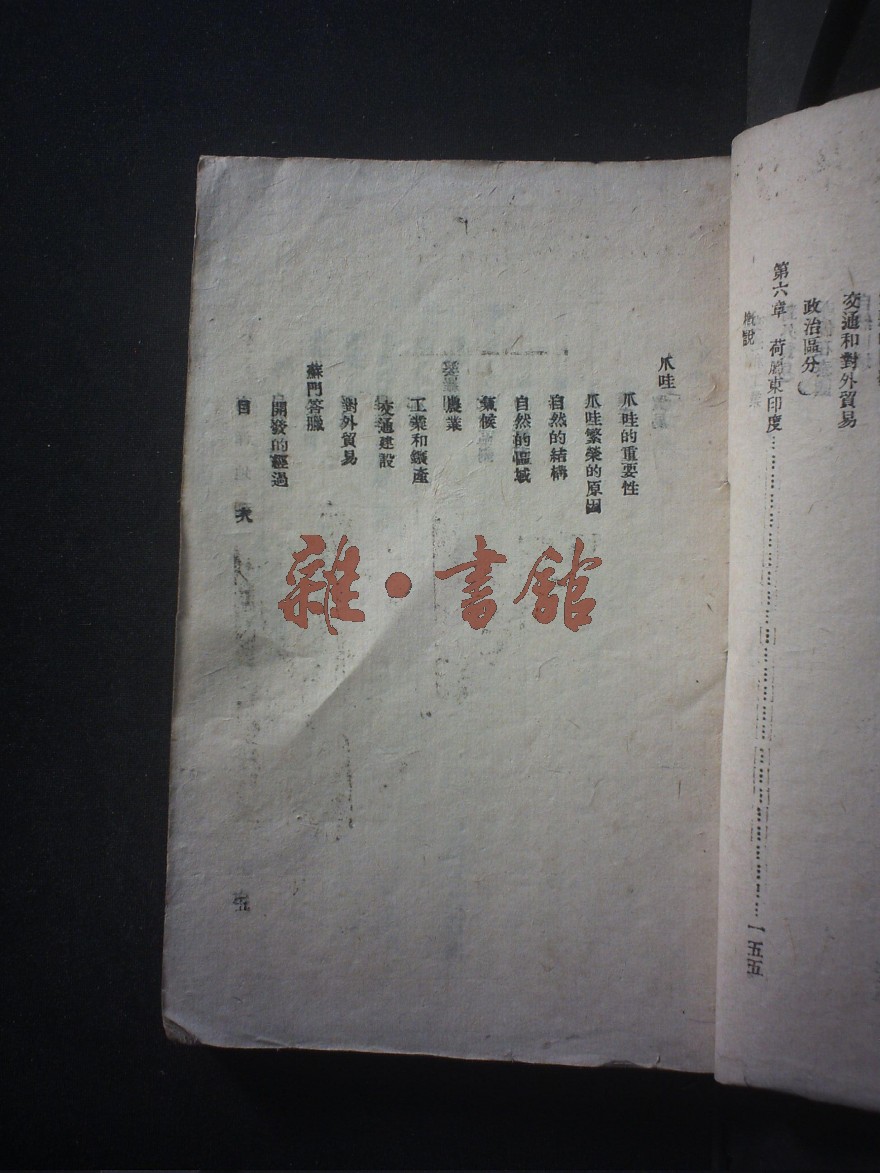 交通和對外貿易
政治區分
第六章 荷屬東印度……………………………………一五五
概說
爪哇
爪哇的重要性
爪哇繁榮的原因
自然的結構
自然的區域
氣候
農業
工業和鑛產
交通建設
對外貿易
蘇門答臘
開發的經過
目 次
五
雜·書館